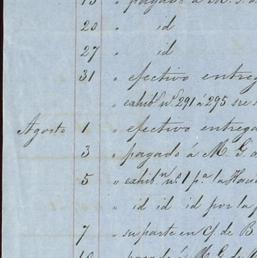 13 " pagado á M. G. d
20 " id
27 " id
31 " efectivo entreg
exhib.n nº. 291 á 295 se
Agosto 1 " efectivo entrega
3 " pagado á M. G. d
5 " exhib.n nº. 1 pª. la Haci
id id id por la
7 " su parte en C/ de B
10 " pagado á M. G. d